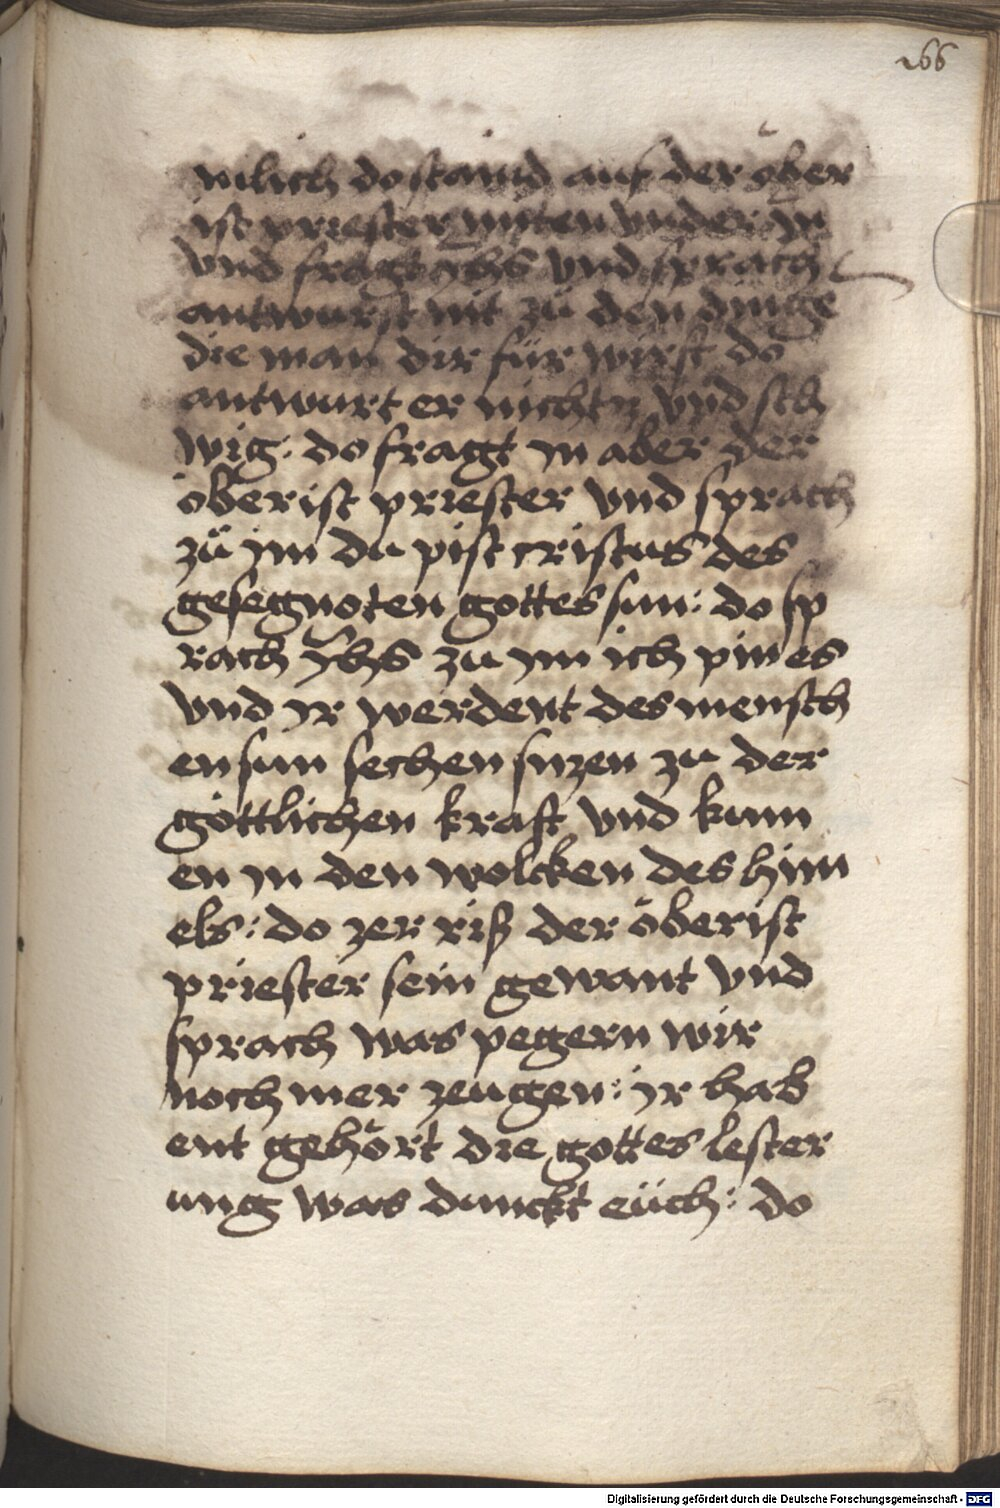 266
mlich do staind auf der ober
ist priester miten vnder in
vnd fragt ihs vnd sprach
antwurst nit zů den dinge
die man dir für wirft do
antwurt er nichtz vnd sch
wig. do fragt in aber der
öberist priester vnd sprach
zů im du pist cristus des
gesegnoten gottes sun: do sp
rach Jhs zu im ich pin es
vnd ir werdent des mensch
en sun sechen sitzen zu der
göttlichen kraft vnd kum
en in den wolcken des him
els: do zer riß der öberist
priester sein gewant vnd
sprach was pegern wir
noch mer zeugen: ir hab
ent gehört die gottes lester
ung was dunckt eüch: do
Digitalisierung gefördert durch die Deutsche Forschungsgemeinschaft - DFG